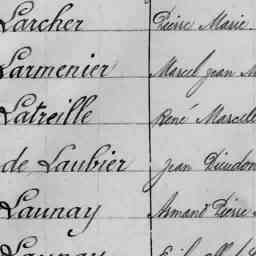 Larcher Pierre Marie
Larmenier Marcel Jean M
Latreille René Marcell
de Laubier Jean Dieudon
Launay Armand Pierre
Launay